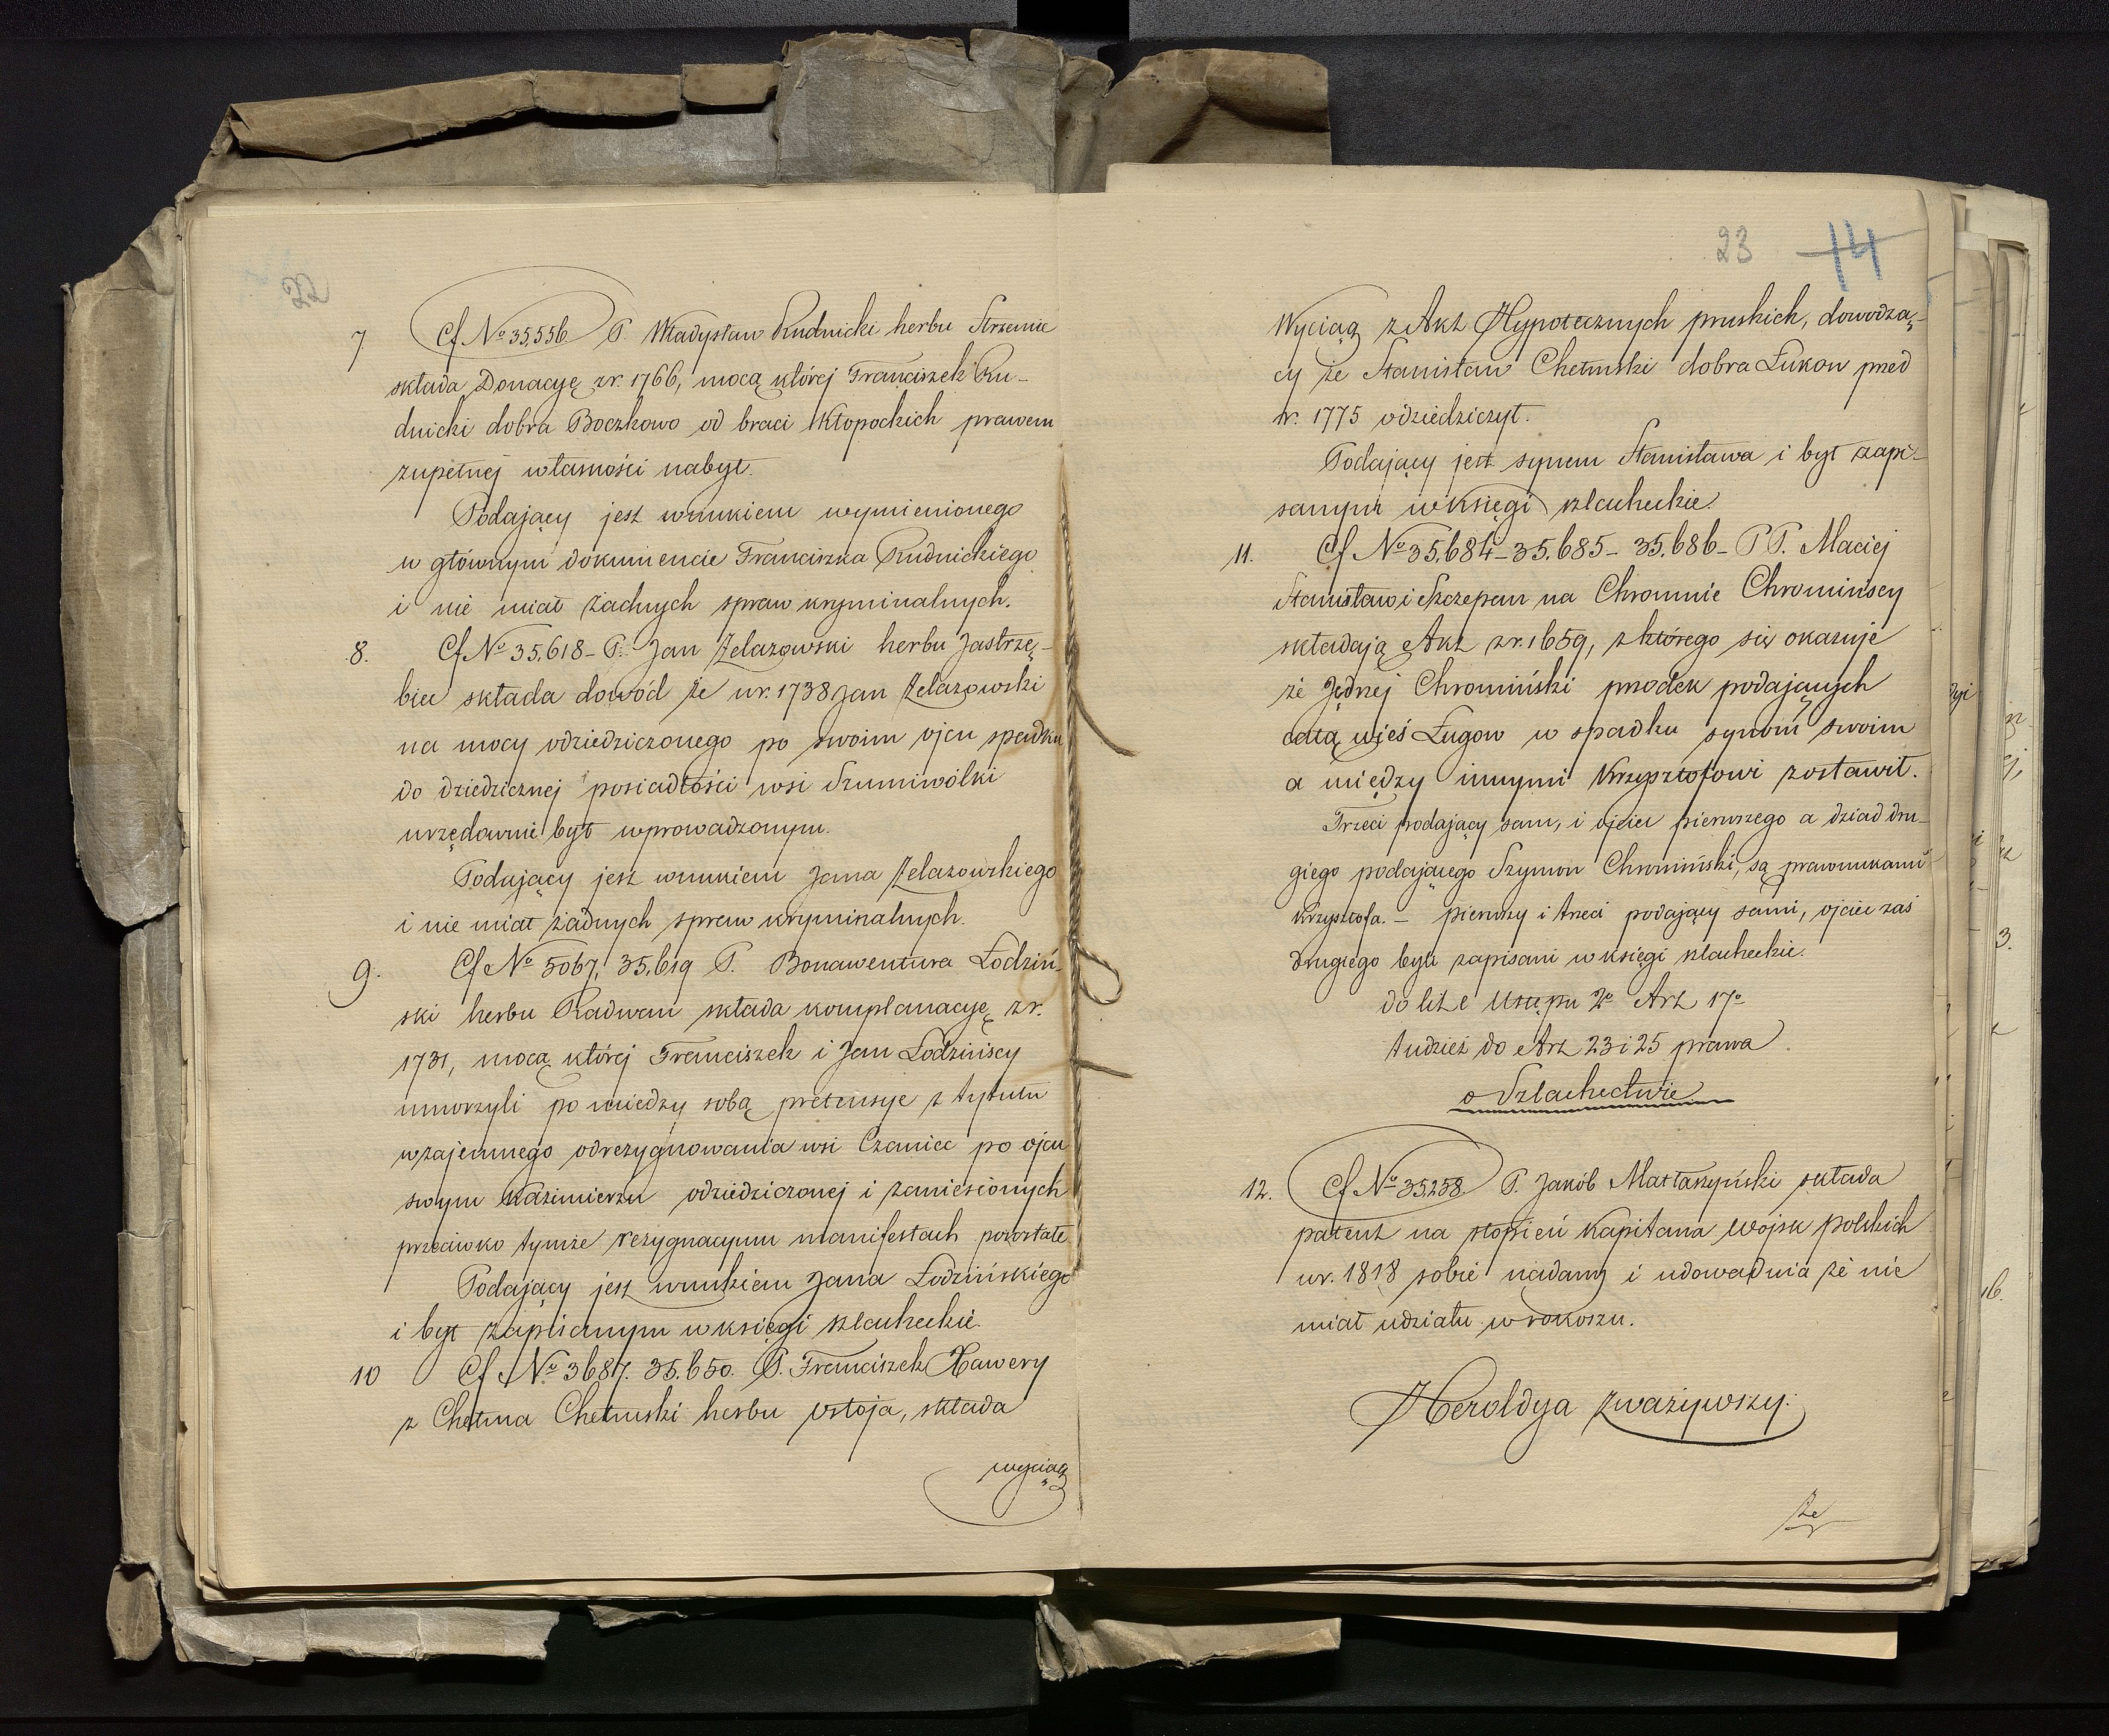 22
7 Cf No 35,556 P. Władysław Rudnicki herbu Strzemie
składa Donacyę z r. 1766, mocą której Franciszek Ru-
dnicki dobra Boczkowo od braci Kłopockich prawem
zupełnej własności nabył.
Podający jest wnukiem wymienionego
w głównym dokumencie Franciszka Rudnickiego
i nie miał żadnych spraw kryminalnych.
8. Cf No 35,618 - P. Jan Żelazowski herbu Jastrzę-
biec składa dowód że w r. 1738 Jan Żelazowski
na mocy odziedziczonego po swoim ojcu spadku
do dziedzicznej posiadłości wsi Szumiwólki
urzędownie był wprowadzonym.
Podający jest wnukiem Jana Żelazowskiego
i nie miał żadnych spraw kryminalnych.
9. Cf No 5067, 35,619 P. Bonawentura Łodziń-
ski herbu Radwan składa komplanacyę z r.
1731, mocą której Franciszek i Jan Łodzińscy
umorzyli pomiędzy sobą pretensye z tytułu
wzajemnego odrezygnowania wsi Czaniec po ojcu
swym Kazimierzu odziedziczonej i zaniesionych
przeciwko tymże rezygnacyom manifestach pozostałe
Podający jest wnukiem Jana Łodzińskiego
i był zapisanym w księgi szlacheckie.
10 Cf No 3687. 35.650. P. Franciszek Xawery
z Chełma Chełmski herbu Ostoja, składa
wyciąg
23 14
Wyciąg z Akt Hypotecznych pruskich, dowodzą-
cy że Stanisław Chełmski dobra Łukow przed
r. 1775 odziedziczył.
Podający jest synem Stanisława i był zapi-
sanym w księgi szlacheckie.
11. Cf No 35.684 - 35.685 - 35.686 - PP. Maciej
Stanisław i Szczepan na Chromnie Chromińscy
składają Akt z r. 1659, z którego się okazuje
że Jędrzej Chromiński przodek podających
całą wieś Ługow w spadku synom swoim
a między innymi Krzysztofowi zostawił.
Trzeci podający sam, i ojciec pierwszego a dziad dru-
giego podającego Szymon Chromiński, są prawnukami
Krzysztofa. - pierwszy i trzeci podający sami, ojciec zaś
drugiego byli zapisani w księgi szlacheckie.
do lit e Ustępu 2o Art 17o
tudzież do Art 23 i 25 prawa
o Szlachectwie
12. Cf No 35258. P. Jakób Matłaszyński składa
patent na stopień Kapitana Wojsk polskich
w r. 1818 sobie nadany i udowadnia że nie
miał udziału w rokoszu.
Heroldya zważywszy:
że